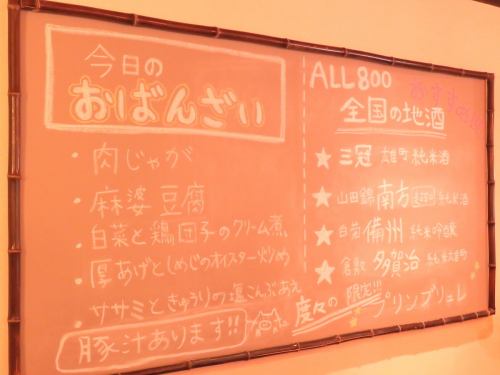 今日の
おばんざい
・肉じゃが
・麻婆豆腐
・白菜と鶏団子のクリーム煮
・厚あげとしめじのオイスター炒め
・ササミときゅうりの塩こんぶあえ
豚汁あります!!
ALL 800
おすすめ!!
全国の地酒
★三冠 雄町 純米酒
★山田錦 南方 純米酒
★白菊 備州 純米吟醸
★倉敷 多賀治 純米雄町
度々の限定!!!
プリンブリュレ